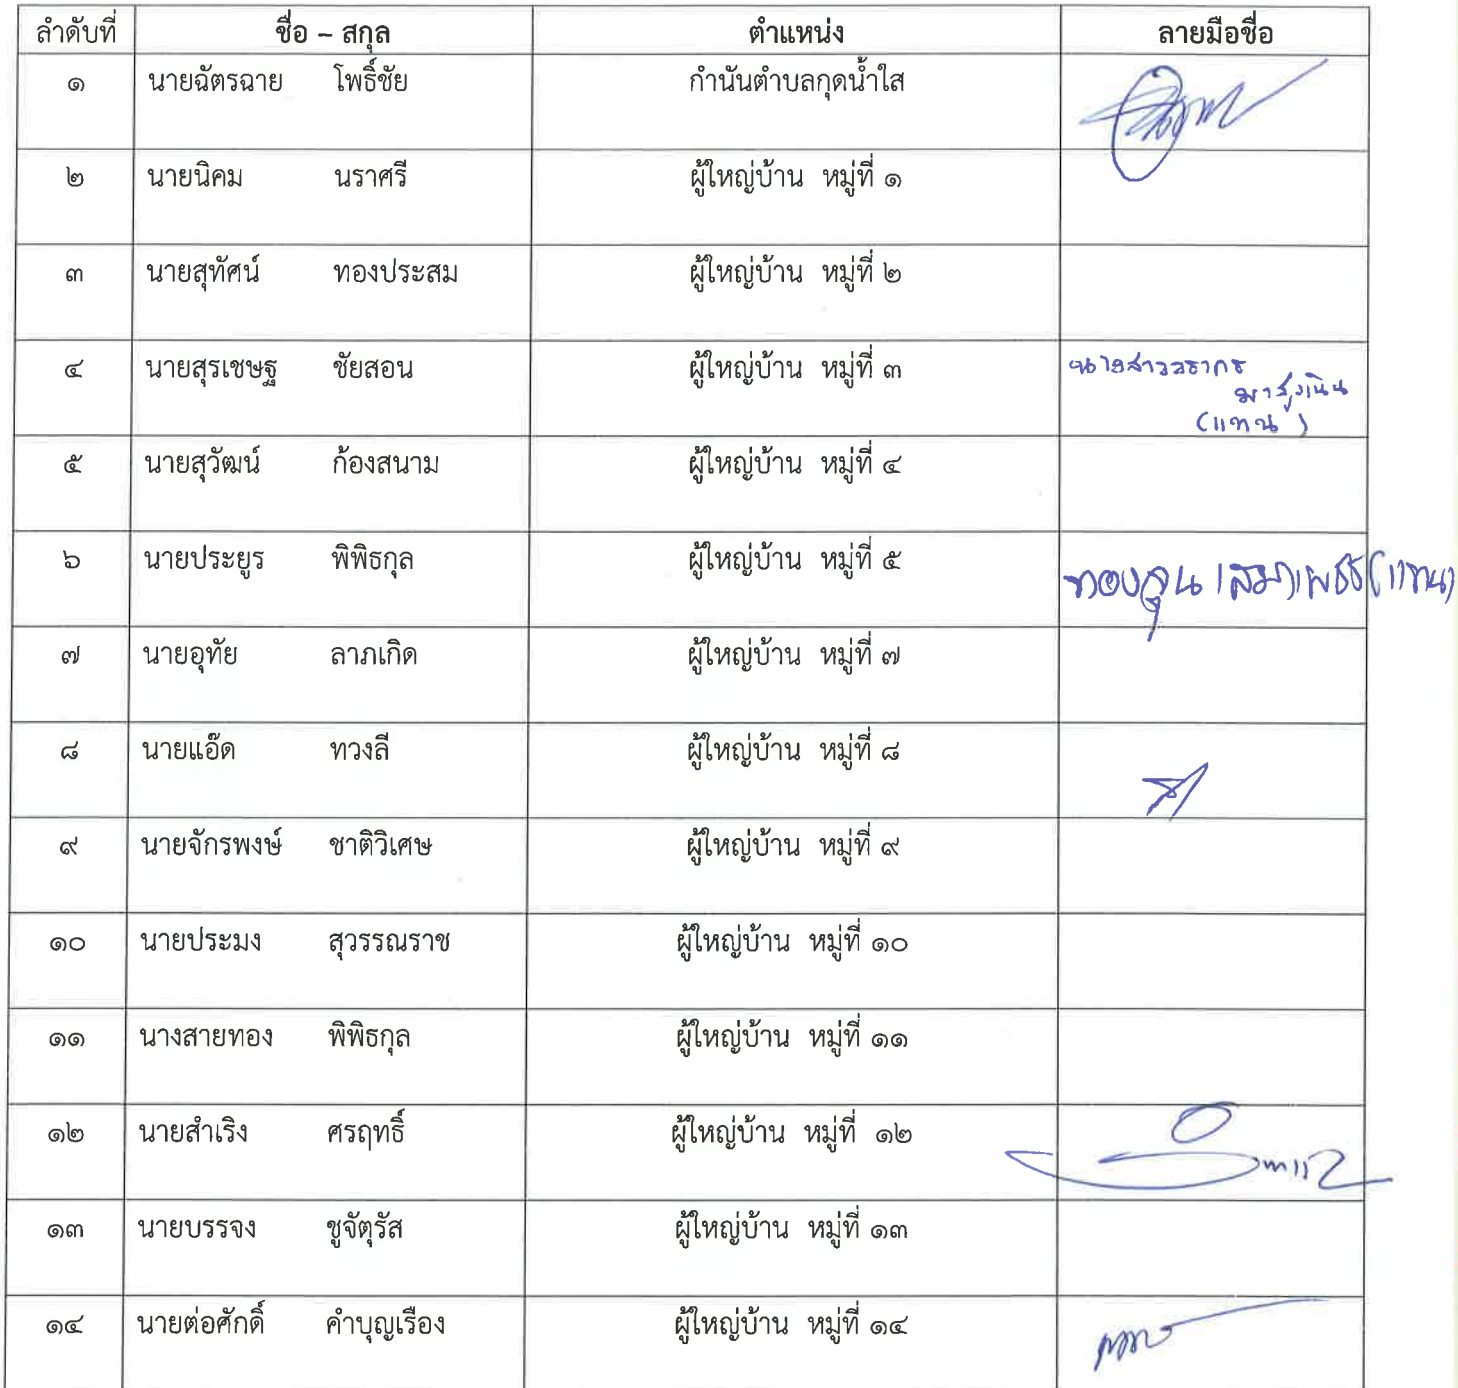 ลำดับที่ ชื่อ – สกุล ตำแหน่ง ลายมือชื่อ
๑ นายฉัตรฉาย โพธิ์ชัย กำนันตำบลกุดน้ำใส
๒ นายนิคม นราศรี ผู้ใหญ่บ้าน หมู่ที่ ๑
๓ นายสุทัศน์ ทองประสม ผู้ใหญ่บ้าน หมู่ที่ ๒
๔ นายสุรเชษฐ ชัยสอน ผู้ใหญ่บ้าน หมู่ที่ ๓
(แทน)
๕ นายสุวัฒน์ ก้องสนาม ผู้ใหญ่บ้าน หมู่ที่ ๔
๖ นายประยูร พิพิธกุล ผู้ใหญ่บ้าน หมู่ที่ ๕ (แทน)
๗ นายอุทัย ลาภเกิด ผู้ใหญ่บ้าน หมู่ที่ ๗
๘ นายแอ๊ด ทวงลี ผู้ใหญ่บ้าน หมู่ที่ ๘
๙ นายจักรพงษ์ ชาติวิเศษ ผู้ใหญ่บ้าน หมู่ที่ ๙
๑๐ นายประมง สุวรรณราช ผู้ใหญ่บ้าน หมู่ที่ ๑๐
๑๑ นางสายทอง พิพิธกุล ผู้ใหญ่บ้าน หมู่ที่ ๑๑
๑๒ นายสำเริง ศรฤทธิ์ ผู้ใหญ่บ้าน หมู่ที่ ๑๒
๑๓ นายบรรจง ชูจัตุรัส ผู้ใหญ่บ้าน หมู่ที่ ๑๓
๑๔ นายต่อศักดิ์ คำบุญเรือง ผู้ใหญ่บ้าน หมู่ที่ ๑๔